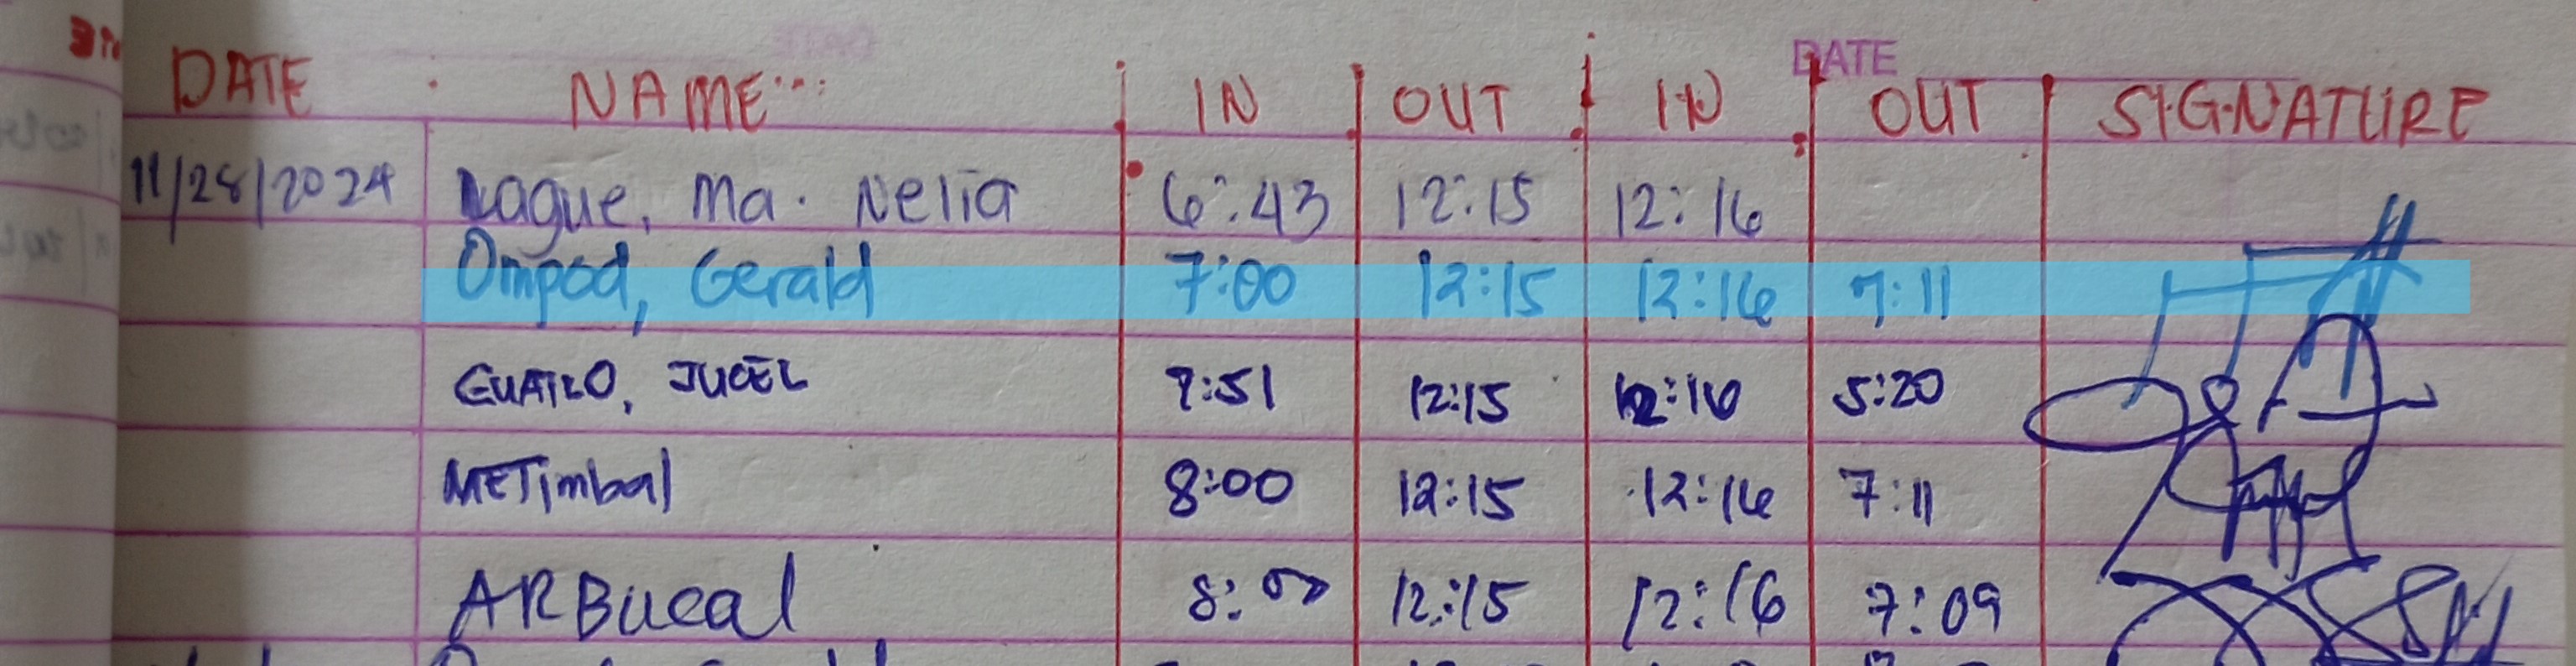 DATE
DATE NAME IN OUT IN OUT SIGNATURE
11/28/2024 Nague, Ma. Nelia 6:43 12:15 12:16
Ompod, Gerald 7:00 12:15 12:16 7:11
GUATLO, JUCEL 7:51 12:15 12:16 5:20
METimbal 8:00 12:15 12:16 7:11
ARBucal 8:00 12:15 12:16 7:09